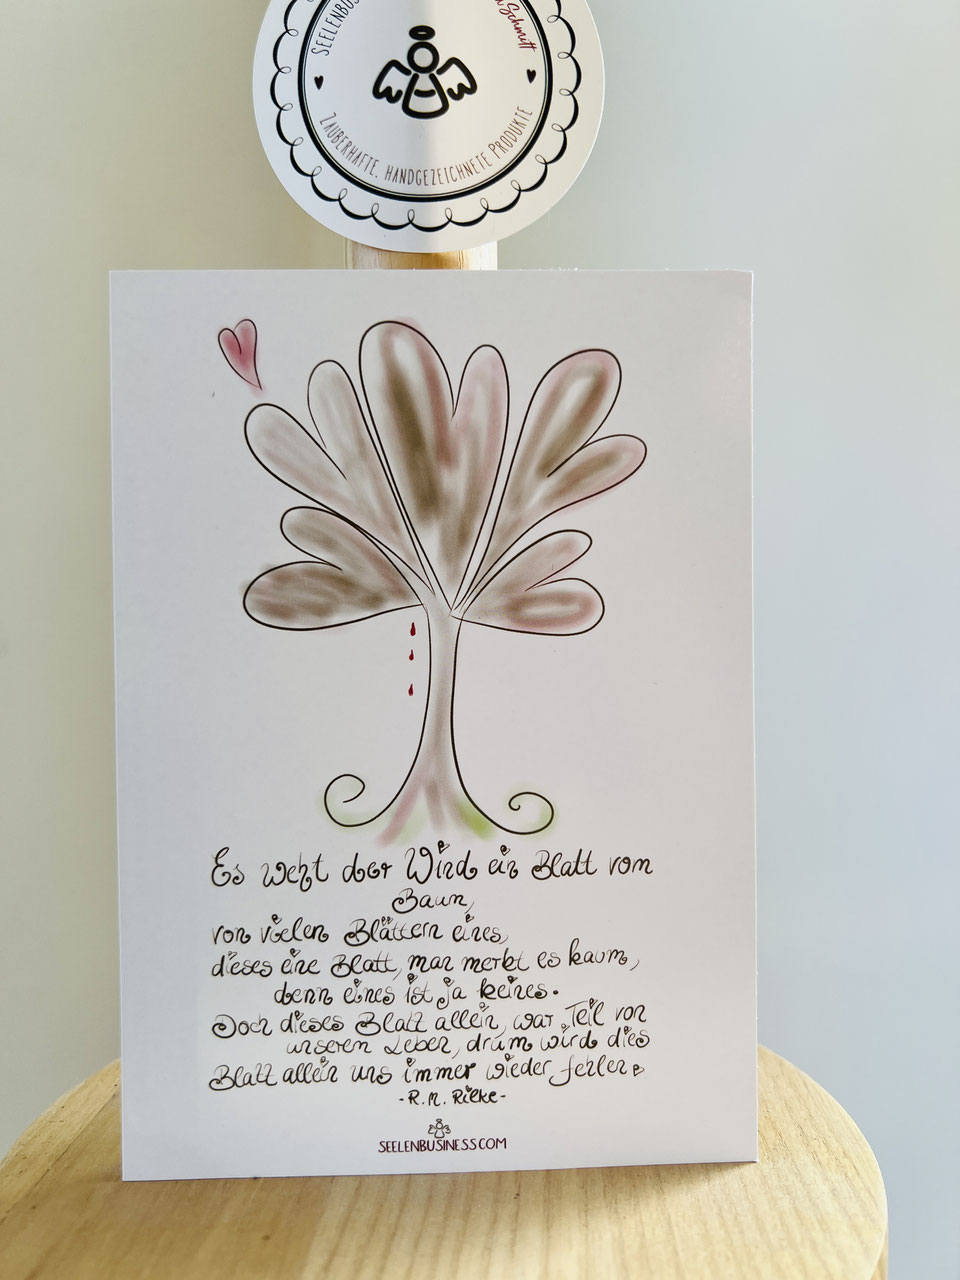 SEELENBUS
Schmitt
ZAUBERHAFTE, HANDGEZEICHNETE PRODUKTE
Es weht der Wind ein Blatt vom
Baum,
von vielen Blättern eines,
dieses eine Blatt, man merkt es kaum,
denn eines ist ja keines.
Doch dieses Blatt allein, war Teil von
unserem Leben, drum wird dies
Blatt allein uns immer wieder fehlen
-R.M. Rilke-
SEELENBUSINESS.COM